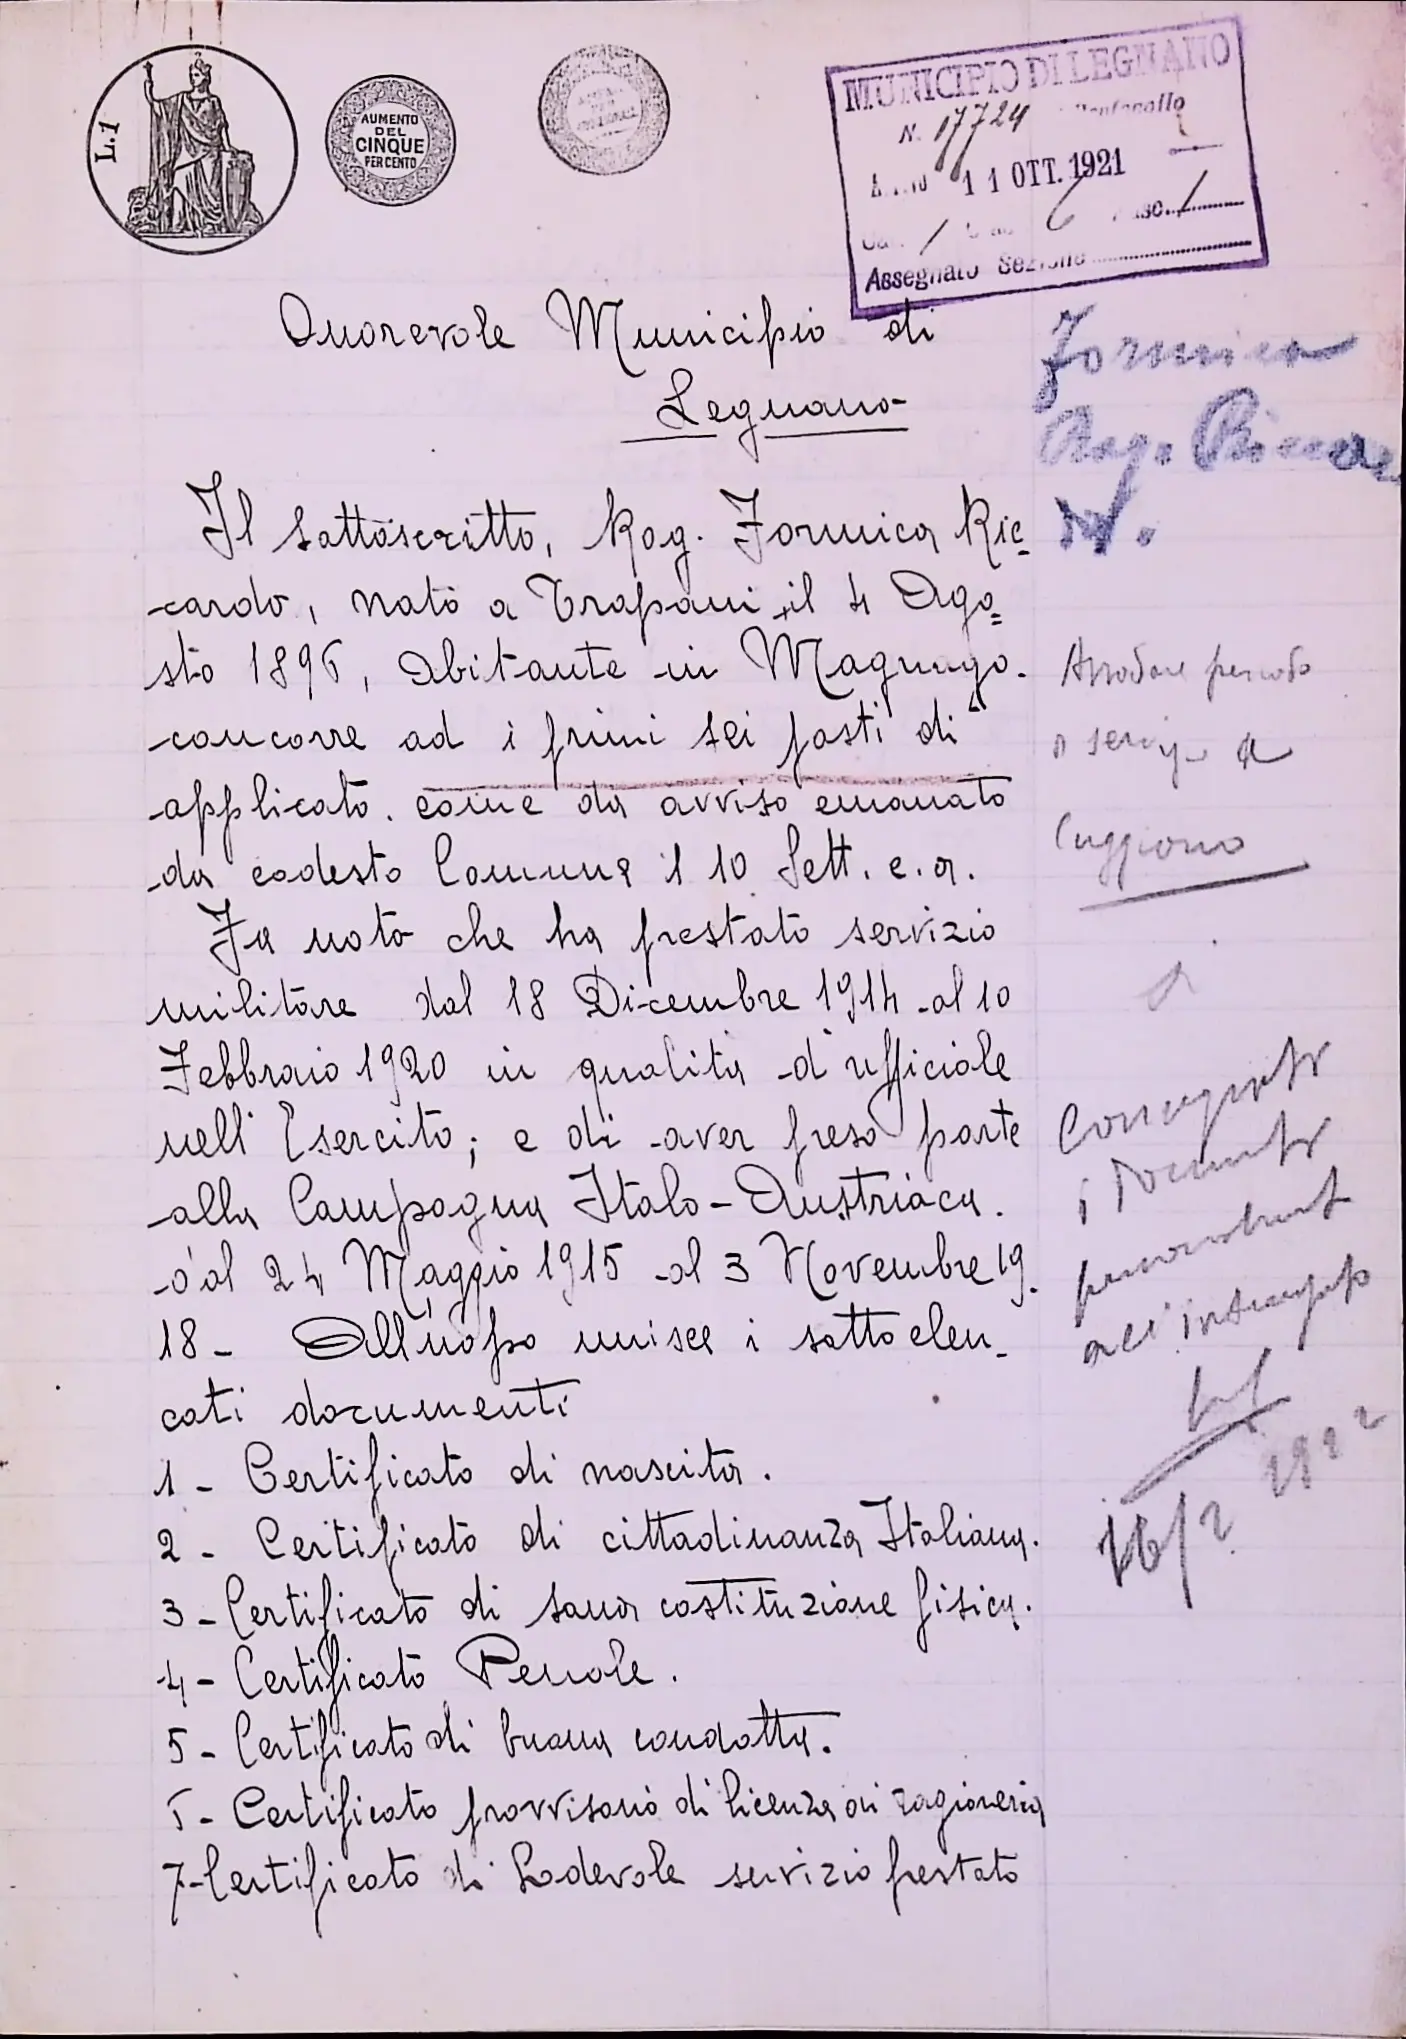 L.1
AUMENTO
DEL
CINQUE
PER CENTO
MUNICIPIO DI LEGNANO
N. 17724
11 OTT. 1921
6
Assegnato Sezione
Onorevole Municipio di
Legnano
Formica
Rag. Riccar
Il sottoscritto, Rag. Formica Ric=
cardo, nato a Trapani il 4 Ago=
sto 1896, abitante in Magnago.
concorre ad i primi sei posti di
applicato. come da avviso emanato
da codesto Comune il 10 Sett. c.a.
Fa noto che ha prestato servizio
militare dal 18 Dicembre 1914 al 10
Febbraio 1920 in qualità d'ufficiale
nell'Esercito; e di aver preso parte
alla Campagna Italo-Austriaca.
dal 24 Maggio 1915 al 3 Novembre 19.
18- All'uopo unisce i sottoelen-
cati documenti
1- Certificato di nascita.
2- Certificato di cittadinanza Italiana.
3- Certificato di sana costituzione fisica.
4- Certificato Penale.
5- Certificato di buona condotta.
6- Certificato provvisorio di licenza di ragioneria
7- Certificato di Lodevole servizio prestato
periodo
a
Cuggiono
i documenti
all'
16/2 1922